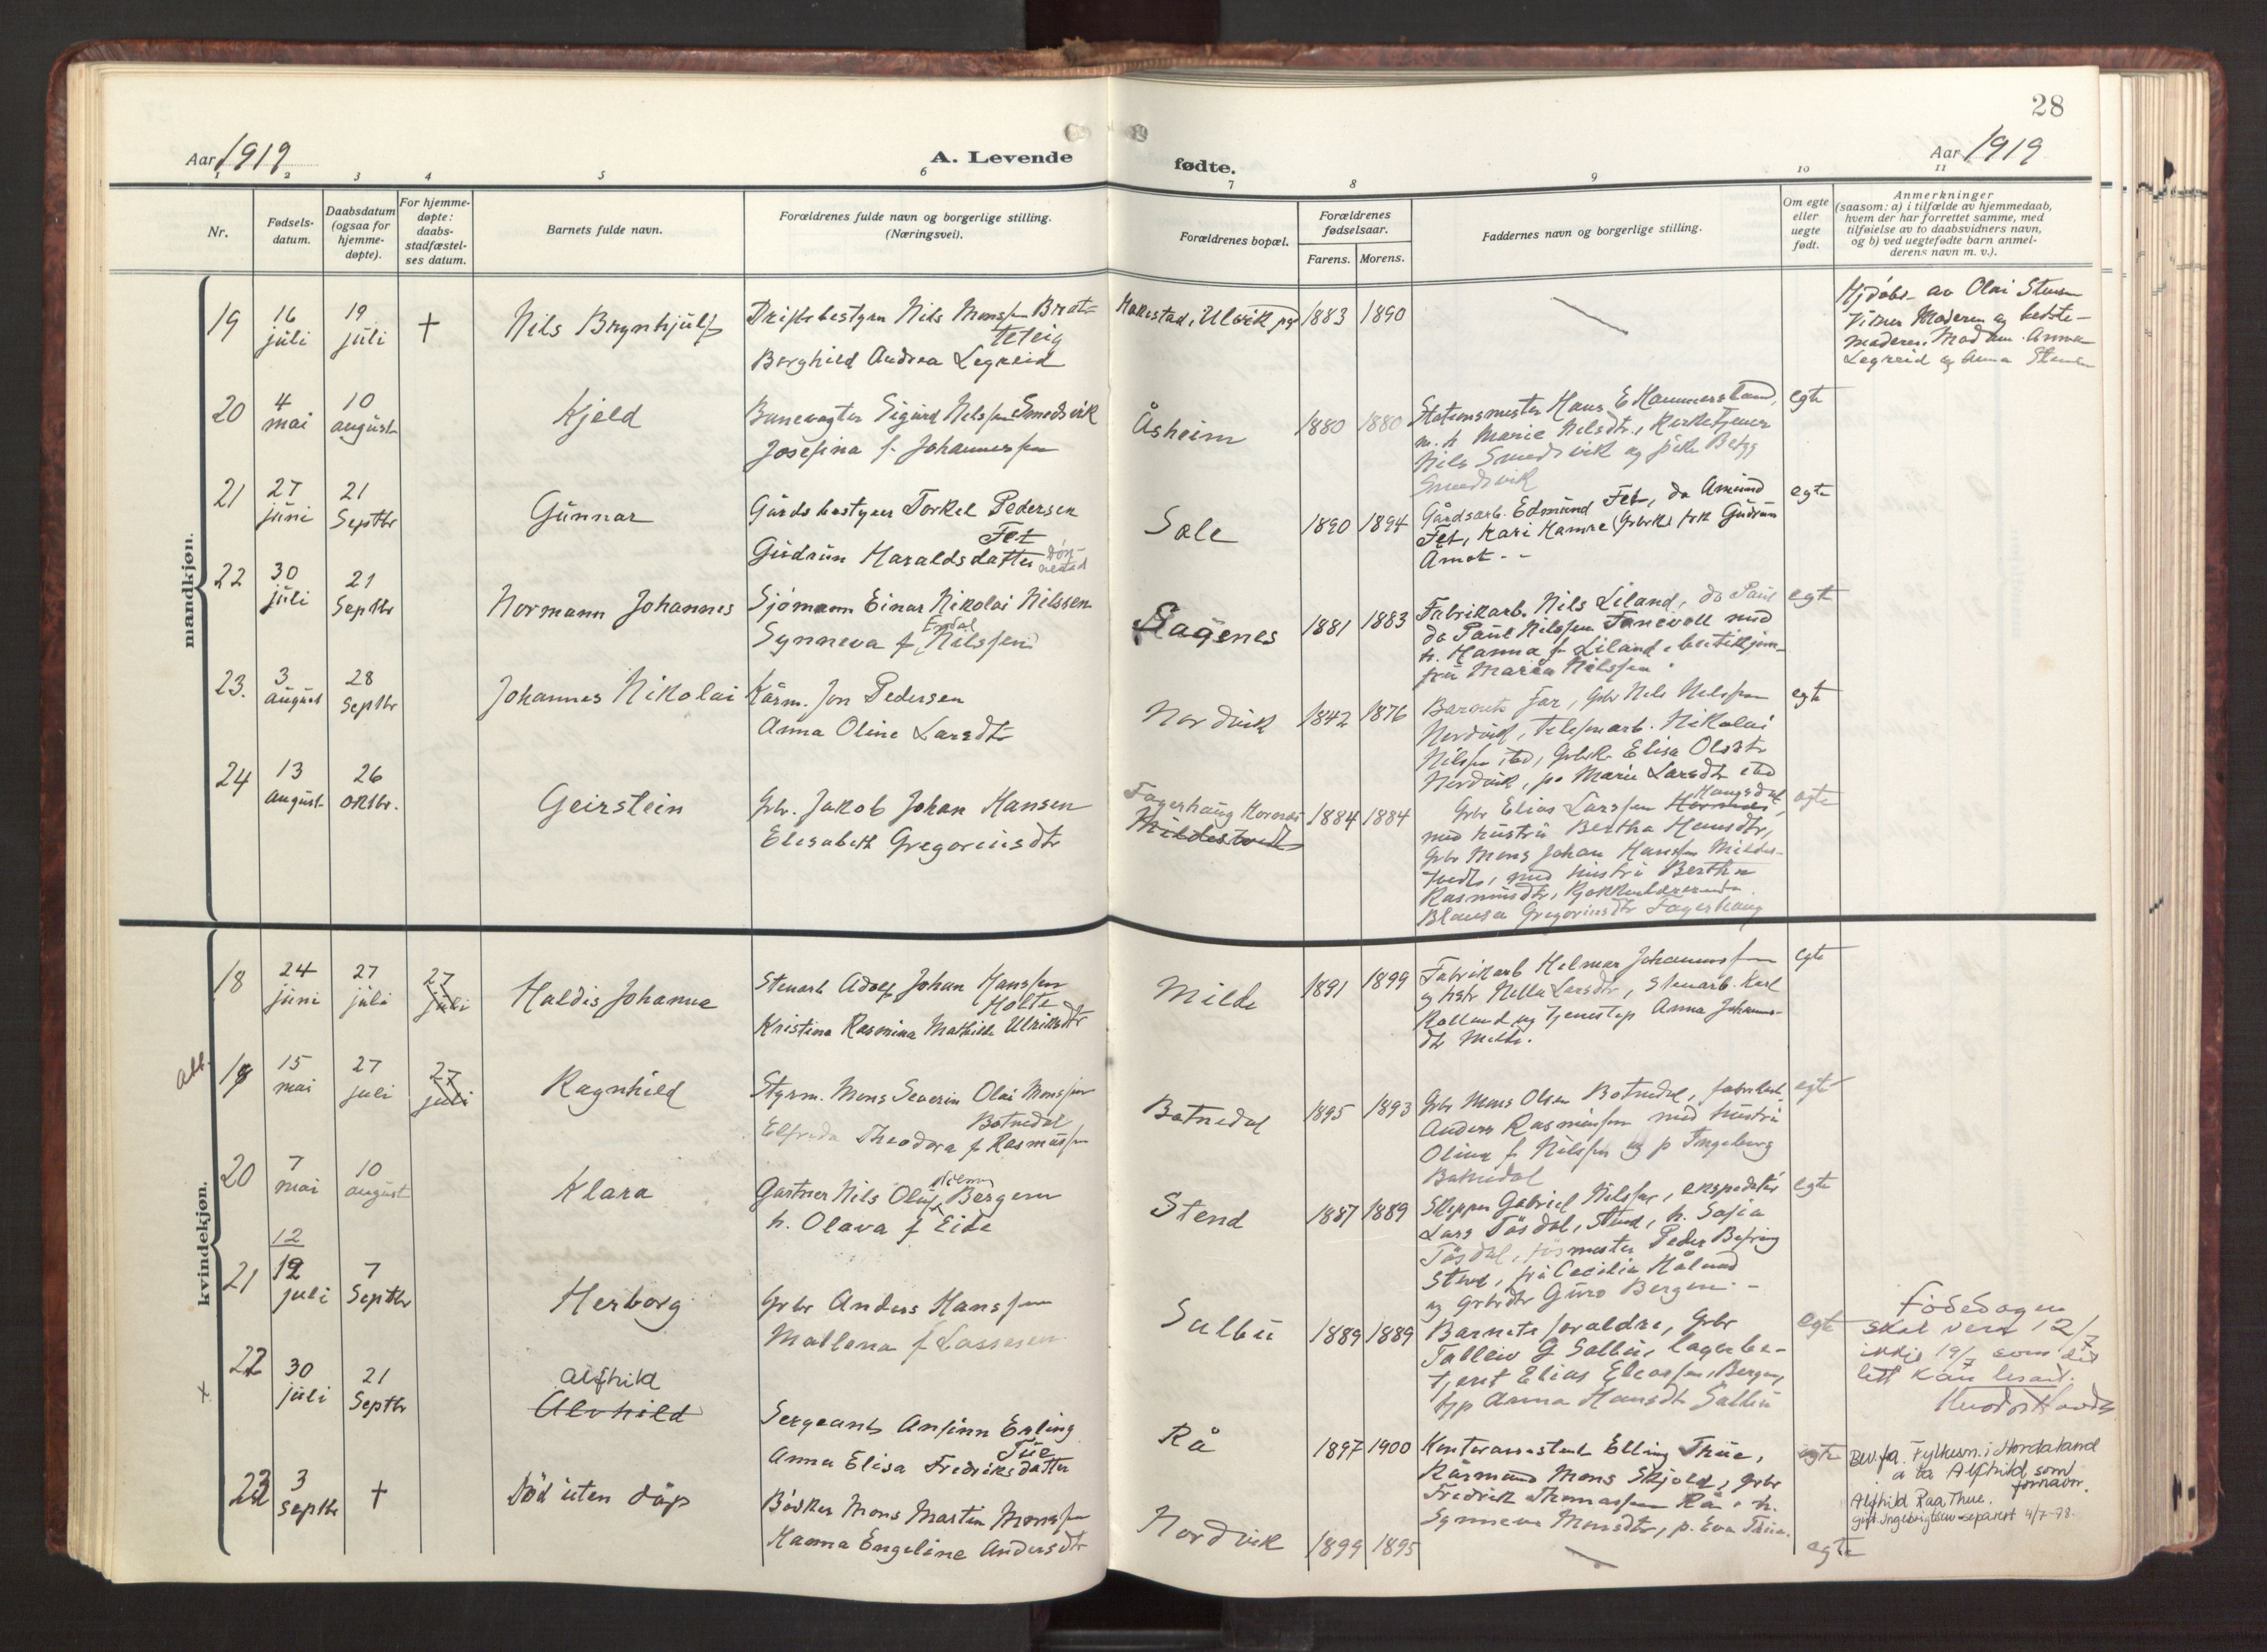 28
Aar 1919
A. Levende
fødte.
Aar 1919
1 2 3 4 5 6 7 8 9 10 11
Nr.
Fødsels-
datum.
Daabsdatum
(ogsaa for
hjemme-
døpte).
For hjemme-
døpte:
daabs-
stadfæstel-
ses datum.
Barnets fulde navn.
Forældrenes fulde navn og borgerlige stilling.
(Næringsvei).
Forældrenes bopæl.
Forældrenes
fødselsaar.
Farens. Morens.
Faddernes navn og borgerlige stilling.
Om egte
eller
uegte
født.
Anmerkninger
(saasom: a) i tilfælde av hjemmedaab,
hvem der har forrettet samme, med
tilføielse av to daabsvidners navn,
og b) ved uegtefødte barn anmel-
derens navn m. v.).
mandkjøn.
19
16
juli
19
juli
†
Nils Brynhjulf
Driftsbestyrer Nils Monsen Brat-
teteig
Borghild Andrea Legreid
Ulvik
1883 1890
Hjdøbt av Olai
Vitner Moderen og bedste-
moderen, Madam Anna
Legreid og Anna
20
4
mai
10
august
Kjeld
Banevogter Sigurd Nilssen Smedsvik
Josefina f. Johannessen
Åsheim
1880 1880
Stationsmester Hans E Hammersland,
m. h. Marie Nilsdtr., Kirketjener
Nils Smedsvik og pike
Smedsvik
egte
21
27
juni
21
Septbr
Gunnar
Gårdsbestyrer Torkel Pedersen
Fet
Gudrun Haraldsdatter
Søle
1890 1894
Gårdsarb. Edmund Fet, do Amund
Fet, Kari Hamre frk Gudrun
Amot
egte
22
30
juli
21
Septbr
Normann Johannes
Sjömann Einar Nikolai Nilssen
Synneva f. Nilssen
Lagenes
1881 1883
Fabrikarb. Nils Liland, do Paul
do Paul Nilssen Fanevoll med
h. Hanna f. Liland,
fru Maria Nilssen
egte
23.
3
august
28
Septbr
Johannes Nikolai
Kårm. Jon Pedersen
Anna Oline Larsdtr
Nordvik
1842 1876
Barnets far, Gbr Nils Nilssen
Nordvik, Nikolai
Nilssen ibd, Elisa Olsdtr
Nordvik, p. Marie Larsdtr ibd
egte
24
13
august
26
oktbr.
Geirstein
Gbr. Jakob Johan Hansen
Elisabeth Gregoriusdtr
Fagerhaug
Mildestveit
1884 1884
Gbr Elias Larssen
med hustru Bertha Hansdtr,
Gbr Mons Johan Hanssen Mildes-
tveit, med hustru Bertha
Rasmusdtr,
Gregoriusdtr Fagerhaug
egte
kvindekjøn.
18
24
juni
27
juli
27
juli
Haldis Johanne
Stenarb Adolf Johan Hanssen
Holte
Kristina Rasmina Mathilde Ulriksdtr
Milde
1891 1899
Fabrikarb Helmer Johannessen
og hstr Nella Larsdtr, Stenarb. Karl
Rolland og Anna Johannes-
dtr Milde.
egte
19
15
mai
27
juli
27
juli
Ragnhild
Styrm. Mons Severin Olai Monssen
Botnedal
Elfrida Theodora f Rasmussen
Botnedal
1895 1893
Gbr Mons Olsen Botnedal,
Anders Rasmussen med hustru
Olina f Nilssen og p Ingeborg
Botnedal
egte
20
7
mai
10
august
Klara
Gartner Nils Oluf Bergum
h. Olava f Eide
Stend
1887 1889
Skipper Gabriel Nilssen, ekspeditør
Lars Tösdal, Stend, h. Sofia
Tösdal, Peder
Stend, frü Cecilia
Guro Bergum
egte
21
12
19
juli
7
Septbr
Herborg
Gbr Anders Hanssen
Mallena f Lassesen
Salbu
1889 1889
Barnets foraldre, Gbr
Talleiv G Salbu, lagerbe-
tjent Elias Eleassen, Bergen,
Anna Hansdtr Salbu
egte
Födedagen
skal vera 12/7
ikkje 19/7 som det
lett kan lesast.
22
x
30
juli
21
Septbr
Alfhild
Alvhild
Sergeant Anfinn Erling
Tue
Anna Elisa Fredriksdatter
Rå
1897 1900
Kontorassistent Elling Thue,
Kårmand Mons Skjold, Gbr
Fredrik Thomassen Rå, h.
Synneva Monsdtr, p. Eva Thue.
egte
Bev. fra Fylkesm. i Hordaland
å ta Alfhild som
fornavn.
Alfhild Raa Thue.
gift Ingebrigtsen separert 4/7-78.
23
3
Septbr
†
Död uten dåp
Bödker Mons Martin Monssen
Hanna Engeline Andersdtr
Nordvik
1899 1895
egte